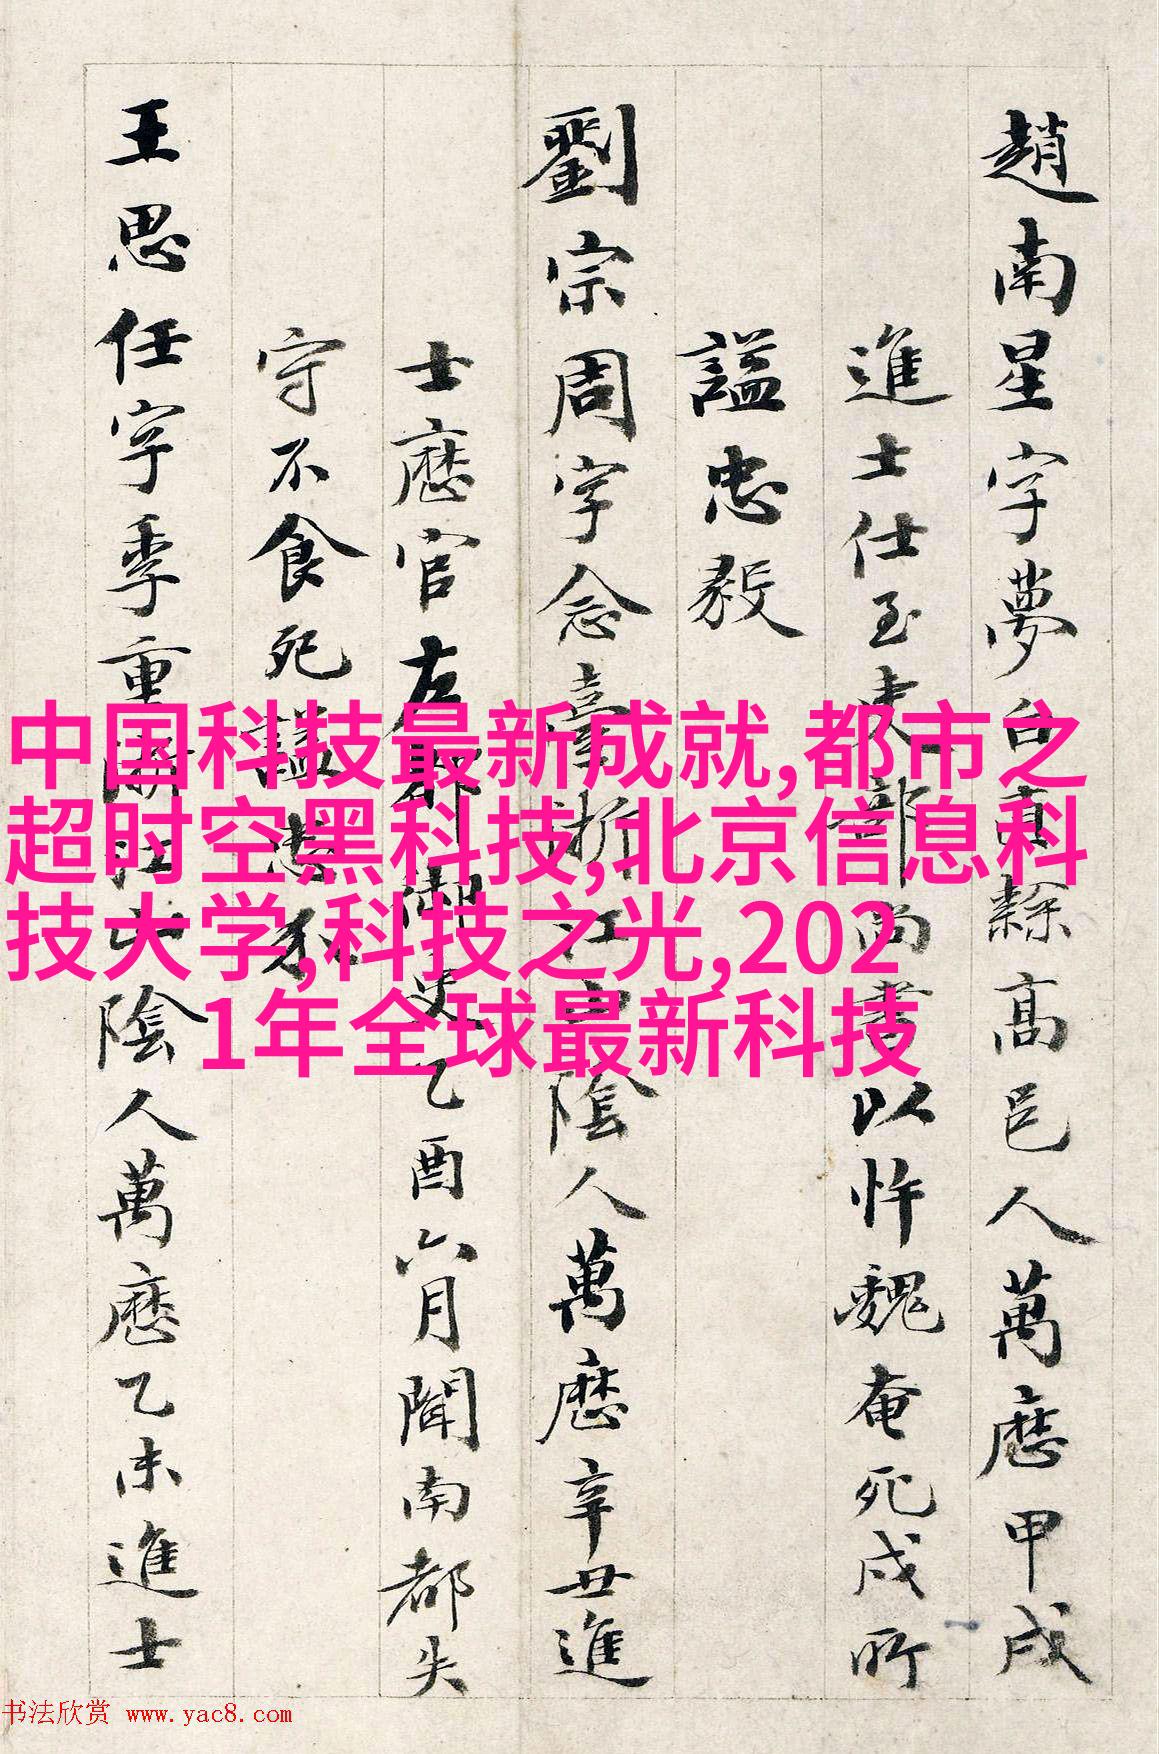 趙南星字夢白直隸高邑人萬曆甲戌
進士仕至吏部尚書以忤魏奄死戍所
諡忠毅
劉宗周字念臺浙江山陰人萬曆辛丑進
士歷官左都御史乙酉六月聞南都失
守不食死諡忠
王思任字季重浙江山陰人萬曆乙未進士
中国科技最新成就,都市之
超时空黑科技,北京信息科
技大学,科技之光,202
1年全球最新科技
书法欣赏 www.yac8.com